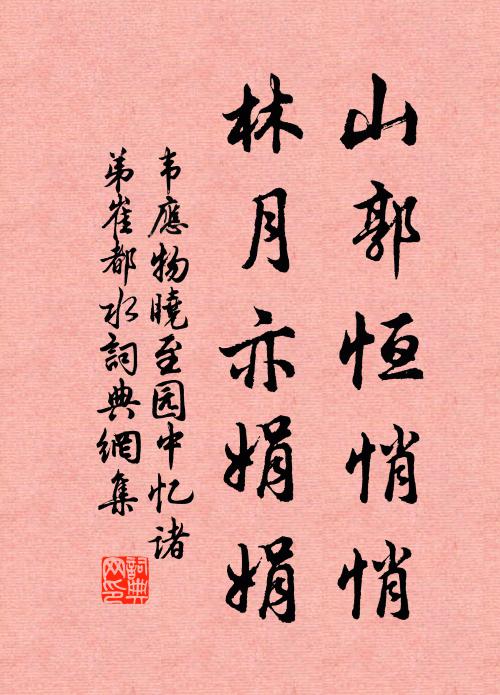 山郭恒悄悄
林月亦娟娟
韦應物曉至园中忆诸
弟崔都水詞典網集
詞典网印